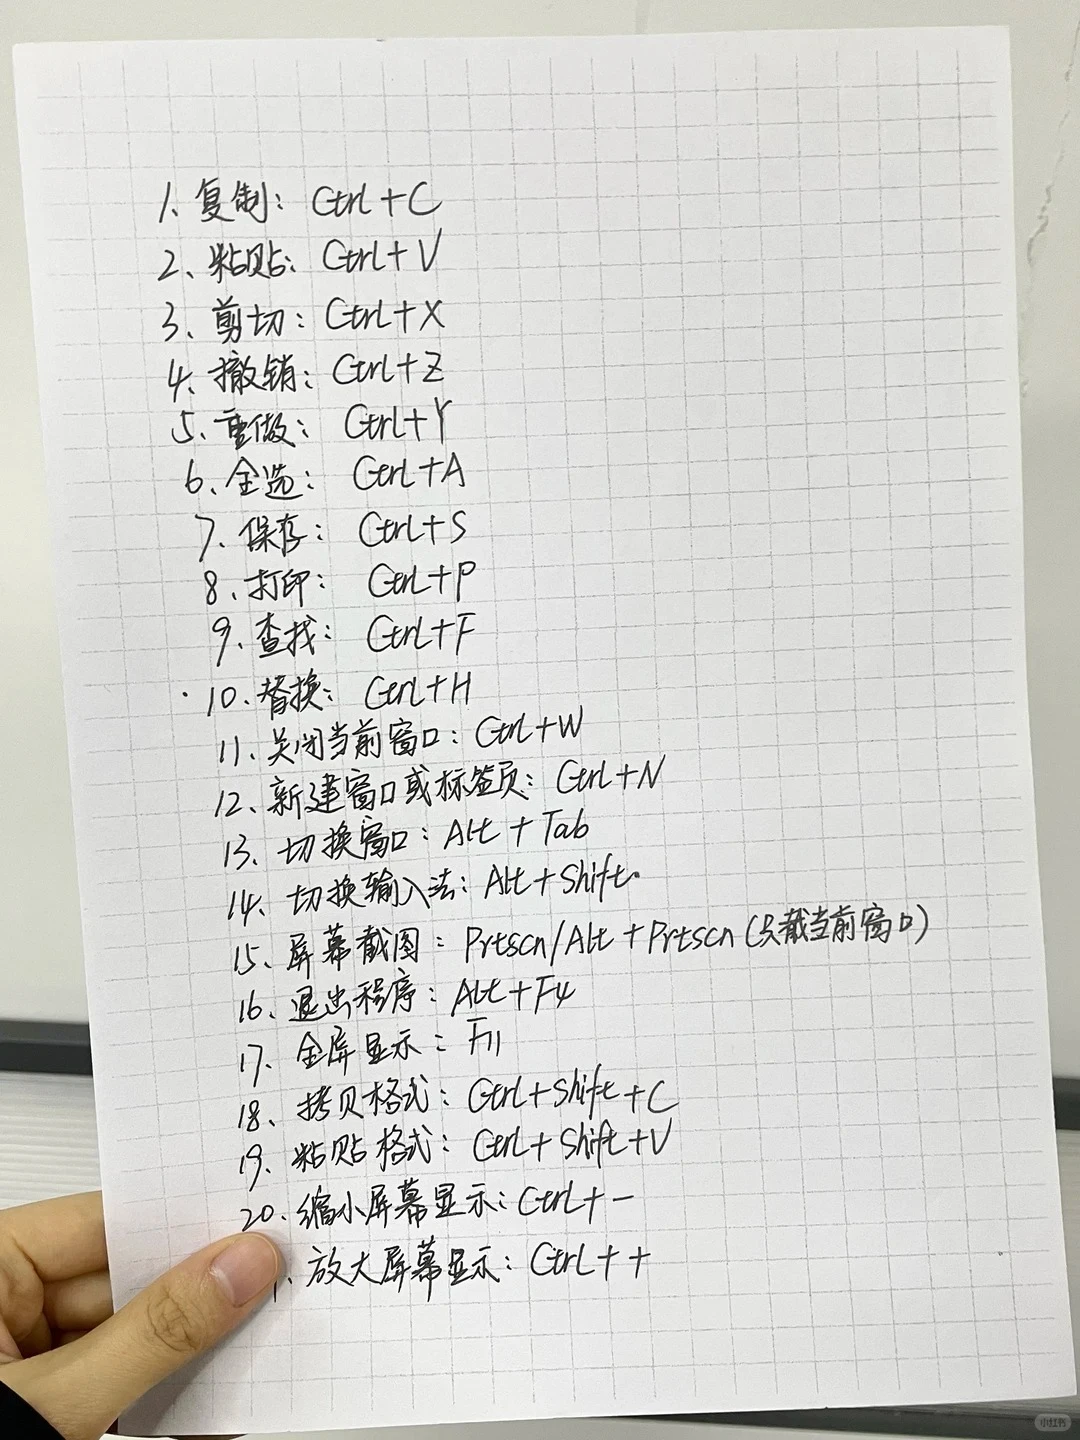 1、复制：Ctrl+C
2、粘贴：Ctrl+V
3、剪切：Ctrl+X
4、撤销：Ctrl+Z
5、重做：Ctrl+Y
6、全选：Ctrl+A
7、保存：Ctrl+S
8、打印：Ctrl+P
9、查找：Ctrl+F
10、替换：Ctrl+H
11、关闭当前窗口：Ctrl+W
12、新建窗口或标签页：Ctrl+N
13、切换窗口：Alt+Tab
14、切换输入法：Alt+Shift
15、屏幕截图：Prtscn/Alt+Prtscn(只截当前窗口)
16、退出程序：Alt+F4
17、全屏显示：F11
18、拷贝格式：Ctrl+Shift+C
19、粘贴格式：Ctrl+Shift+V
20、缩小屏幕显示：Ctrl+-
、放大屏幕显示：Ctrl++
小红书